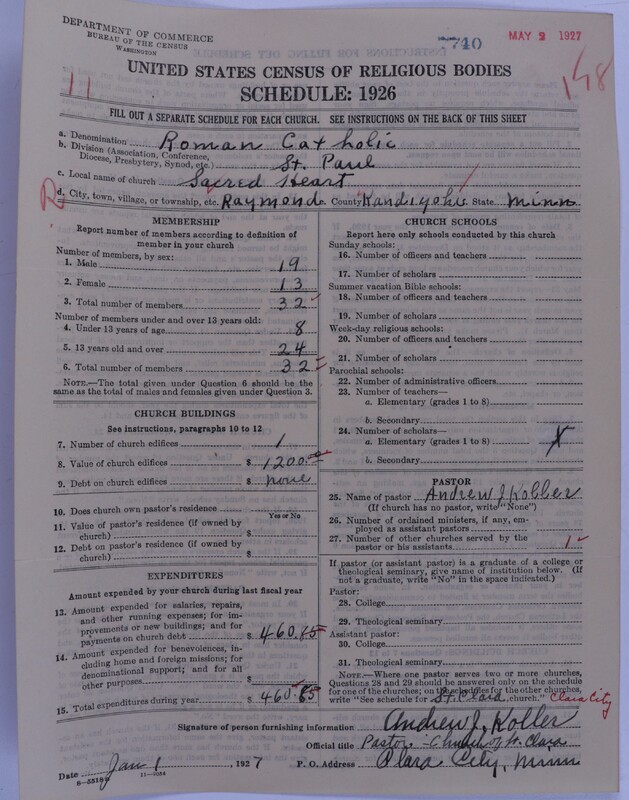 DEPARTMENT OF COMMERCE
BUREAU OF THE CENSUS
WASHINGTON
7740
MAY 2 1927
UNITED STATES CENSUS OF RELIGIOUS BODIES
SCHEDULE: 1926
11
148
FILL OUT A SEPARATE SCHEDULE FOR EACH CHURCH. SEE INSTRUCTIONS ON THE BACK OF THIS SHEET
a. Denomination Roman Catholic
b. Division (Association, Conference, Diocese, Presbytery, Synod, etc.) St. Paul
c. Local name of church Sacred Heart
R
d. City, town, village, or township, etc. Raymond. County Kandiyohi State Minn
MEMBERSHIP
Report number of members according to definition of
member in your church
Number of members, by sex:
1. Male 19
2. Female 13
3. Total number of members 32
Number of members under and over 13 years old:
4. Under 13 years of age 8
5. 13 years old and over 24
6. Total number of members 32
NOTE.—The total given under Question 6 should be
same as the total of males and females given under Question 3.
CHURCH BUILDINGS
See instructions, paragraphs 10 to 12
7. Number of church edifices 1
8. Value of church edifices $ 1200.
9. Debt on church edifices $ none
10. Does church own pastor's residence
Yes or No
11. Value of pastor's residence (if owned by
church) $
12. Debt on pastor's residence (if owned by
church) $
EXPENDITURES
Amount expended by your church during last fiscal year
13. Amount expended for salaries, repairs,
and other running expenses; for im-
provements or new buildings; and for
payments on church debt $ 460.85
14. Amount expended for benevolences, in-
cluding home and foreign missions; for
denominational support; and for all
other purposes $
15. Total expenditures during year $ 460.85
CHURCH SCHOOLS
Report here only schools conducted by this church
Sunday schools:
16. Number of officers and teachers
17. Number of scholars
Summer vacation Bible schools:
18. Number of officers and teachers
19. Number of scholars
Week-day religious schools:
20. Number of officers and teachers
21. Number of scholars
Parochial schools:
22. Number of administrative officers
23. Number of teachers—
a. Elementary (grades 1 to 8)
b. Secondary
24. Number of scholars—
a. Elementary (grades 1 to 8) X
b. Secondary
PASTOR
25. Name of pastor Andrew J Kobler
(If church has no pastor, write "None")
26. Number of ordained ministers, if any, em-
ployed as assistant pastors
27. Number of other churches served by the
pastor or his assistants 1
If pastor (or assistant pastor) is a graduate of a college or
theological seminary, give name of institution below. (If
not a graduate, write "No" in the space indicated.)
Pastor:
28. College
29. Theological seminary
Assistant pastor:
30. College
31. Theological seminary
NOTE.—Where one pastor serves two or more churches,
Questions 28 and 29 should be answered only on the schedule
for one of the churches; on the schedules for the other churches,
write "See schedule for St. Clara church." Clara City
Signature of person furnishing information Andrew J. Kobler
Official title Pastor - Church of St. Clara
Date Jan 1, 1927 P. O. Address Clara City, Minn